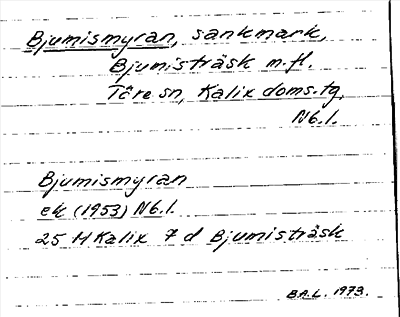 Bjumismyran, sankmark,
Bjumisträsk m.fl.
Töre sn, Kalix doms.tg.
Nb.l.
Bjumismyran
ek (1953) Nb.l.
25 M Kalix 7 d Bjumisträsk
B.A.L. 1973.